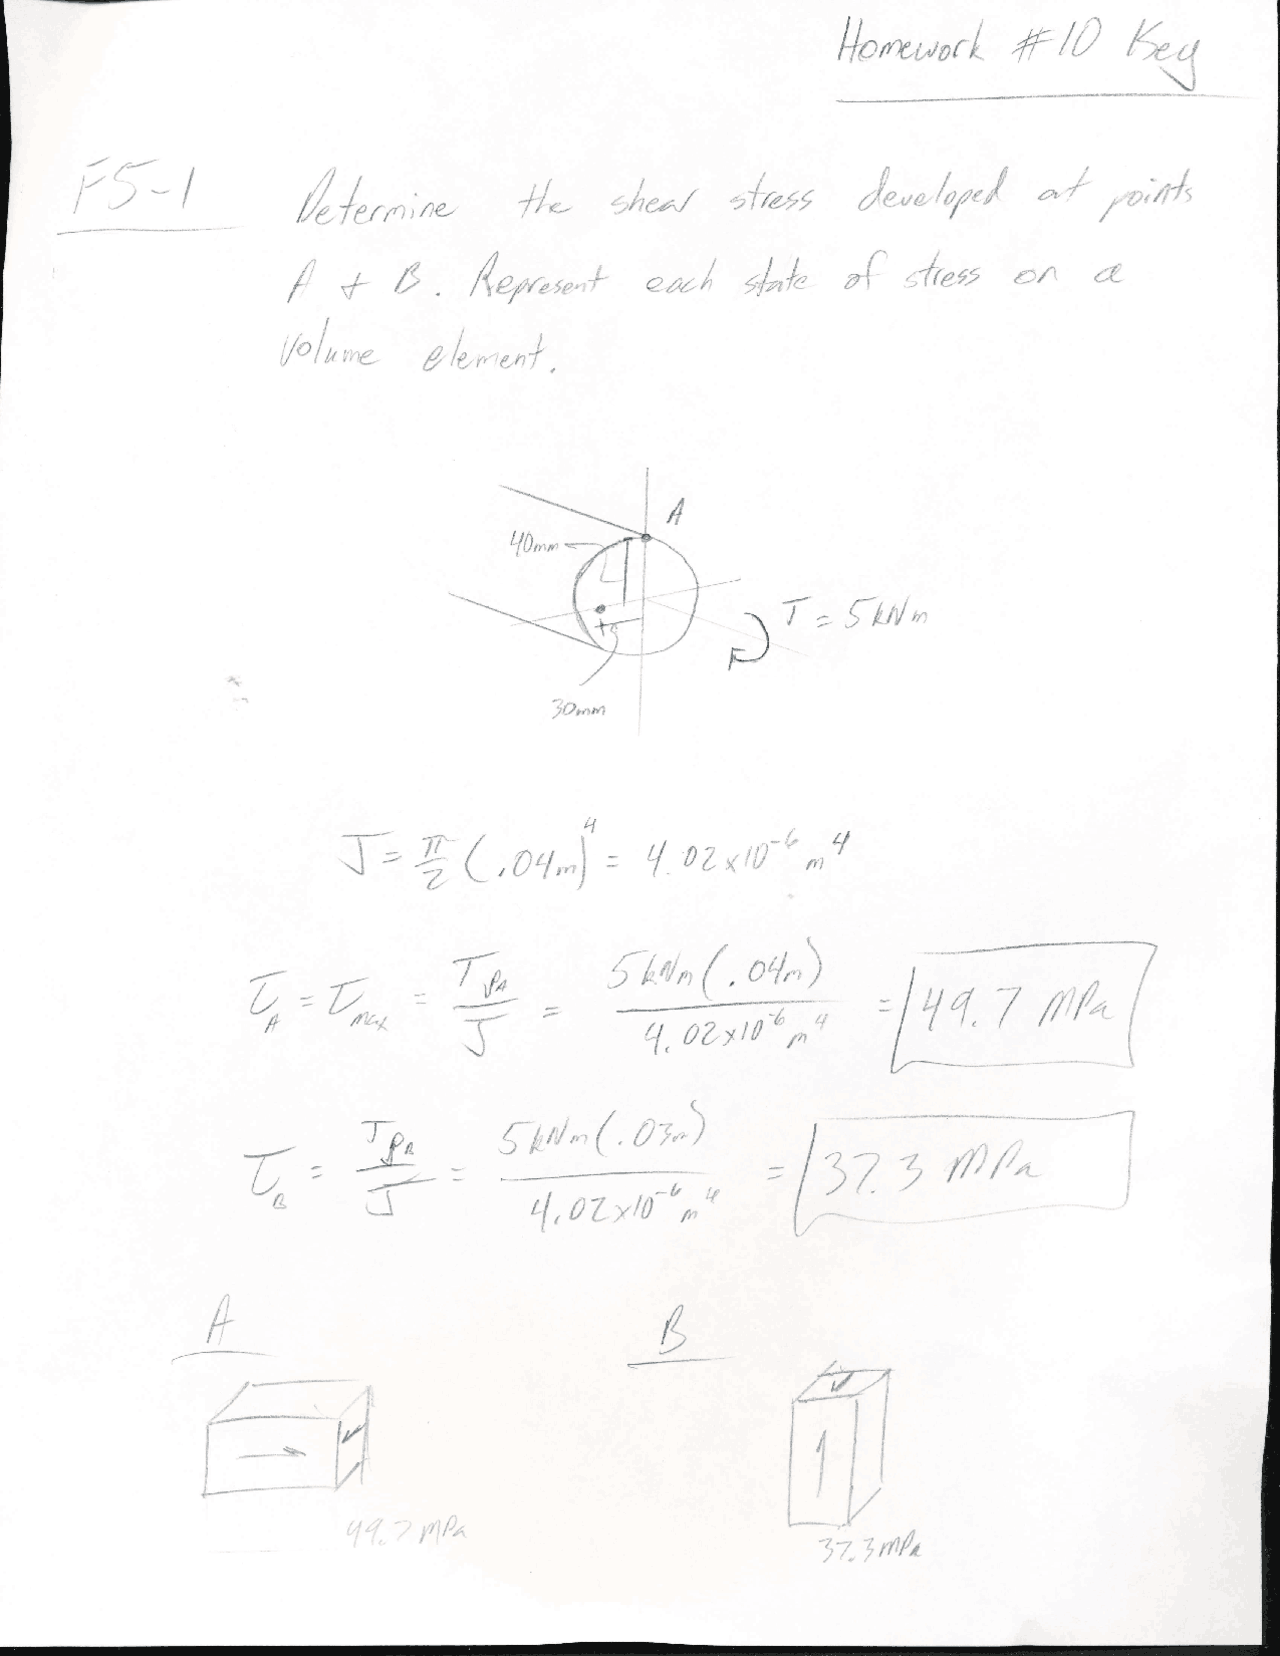 Homework #10 Key
F5-1 Determine the shear stress developed at points
A + B. Represent each state of stress on a
volume element.
A
40mm
T = 5kNm
30mm
J = π/2 (.04m)^4 = 4.02x10^-6 m^4
τ_A = τ_max = Tρ_A/J = 5kNm(.04m)/4.02x10^-6 m^4 = 49.7 MPa
τ_B = Tρ_B/J = 5kNm(.03m)/4.02x10^-6 m^4 = 37.3 MPa
A B
49.7 MPa
37.3 MPa